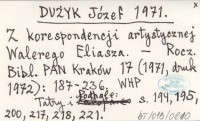 DUŻYK Józef 1971.
Z korespondencji artystycznej
Walerego Eliasza. — Rocz.
Bibl. PAN Kraków 17 (1971, druk
1972): 187-236, WHP
Podhale:
Tatry s. 194, 195,
200, 217, 218, 221.